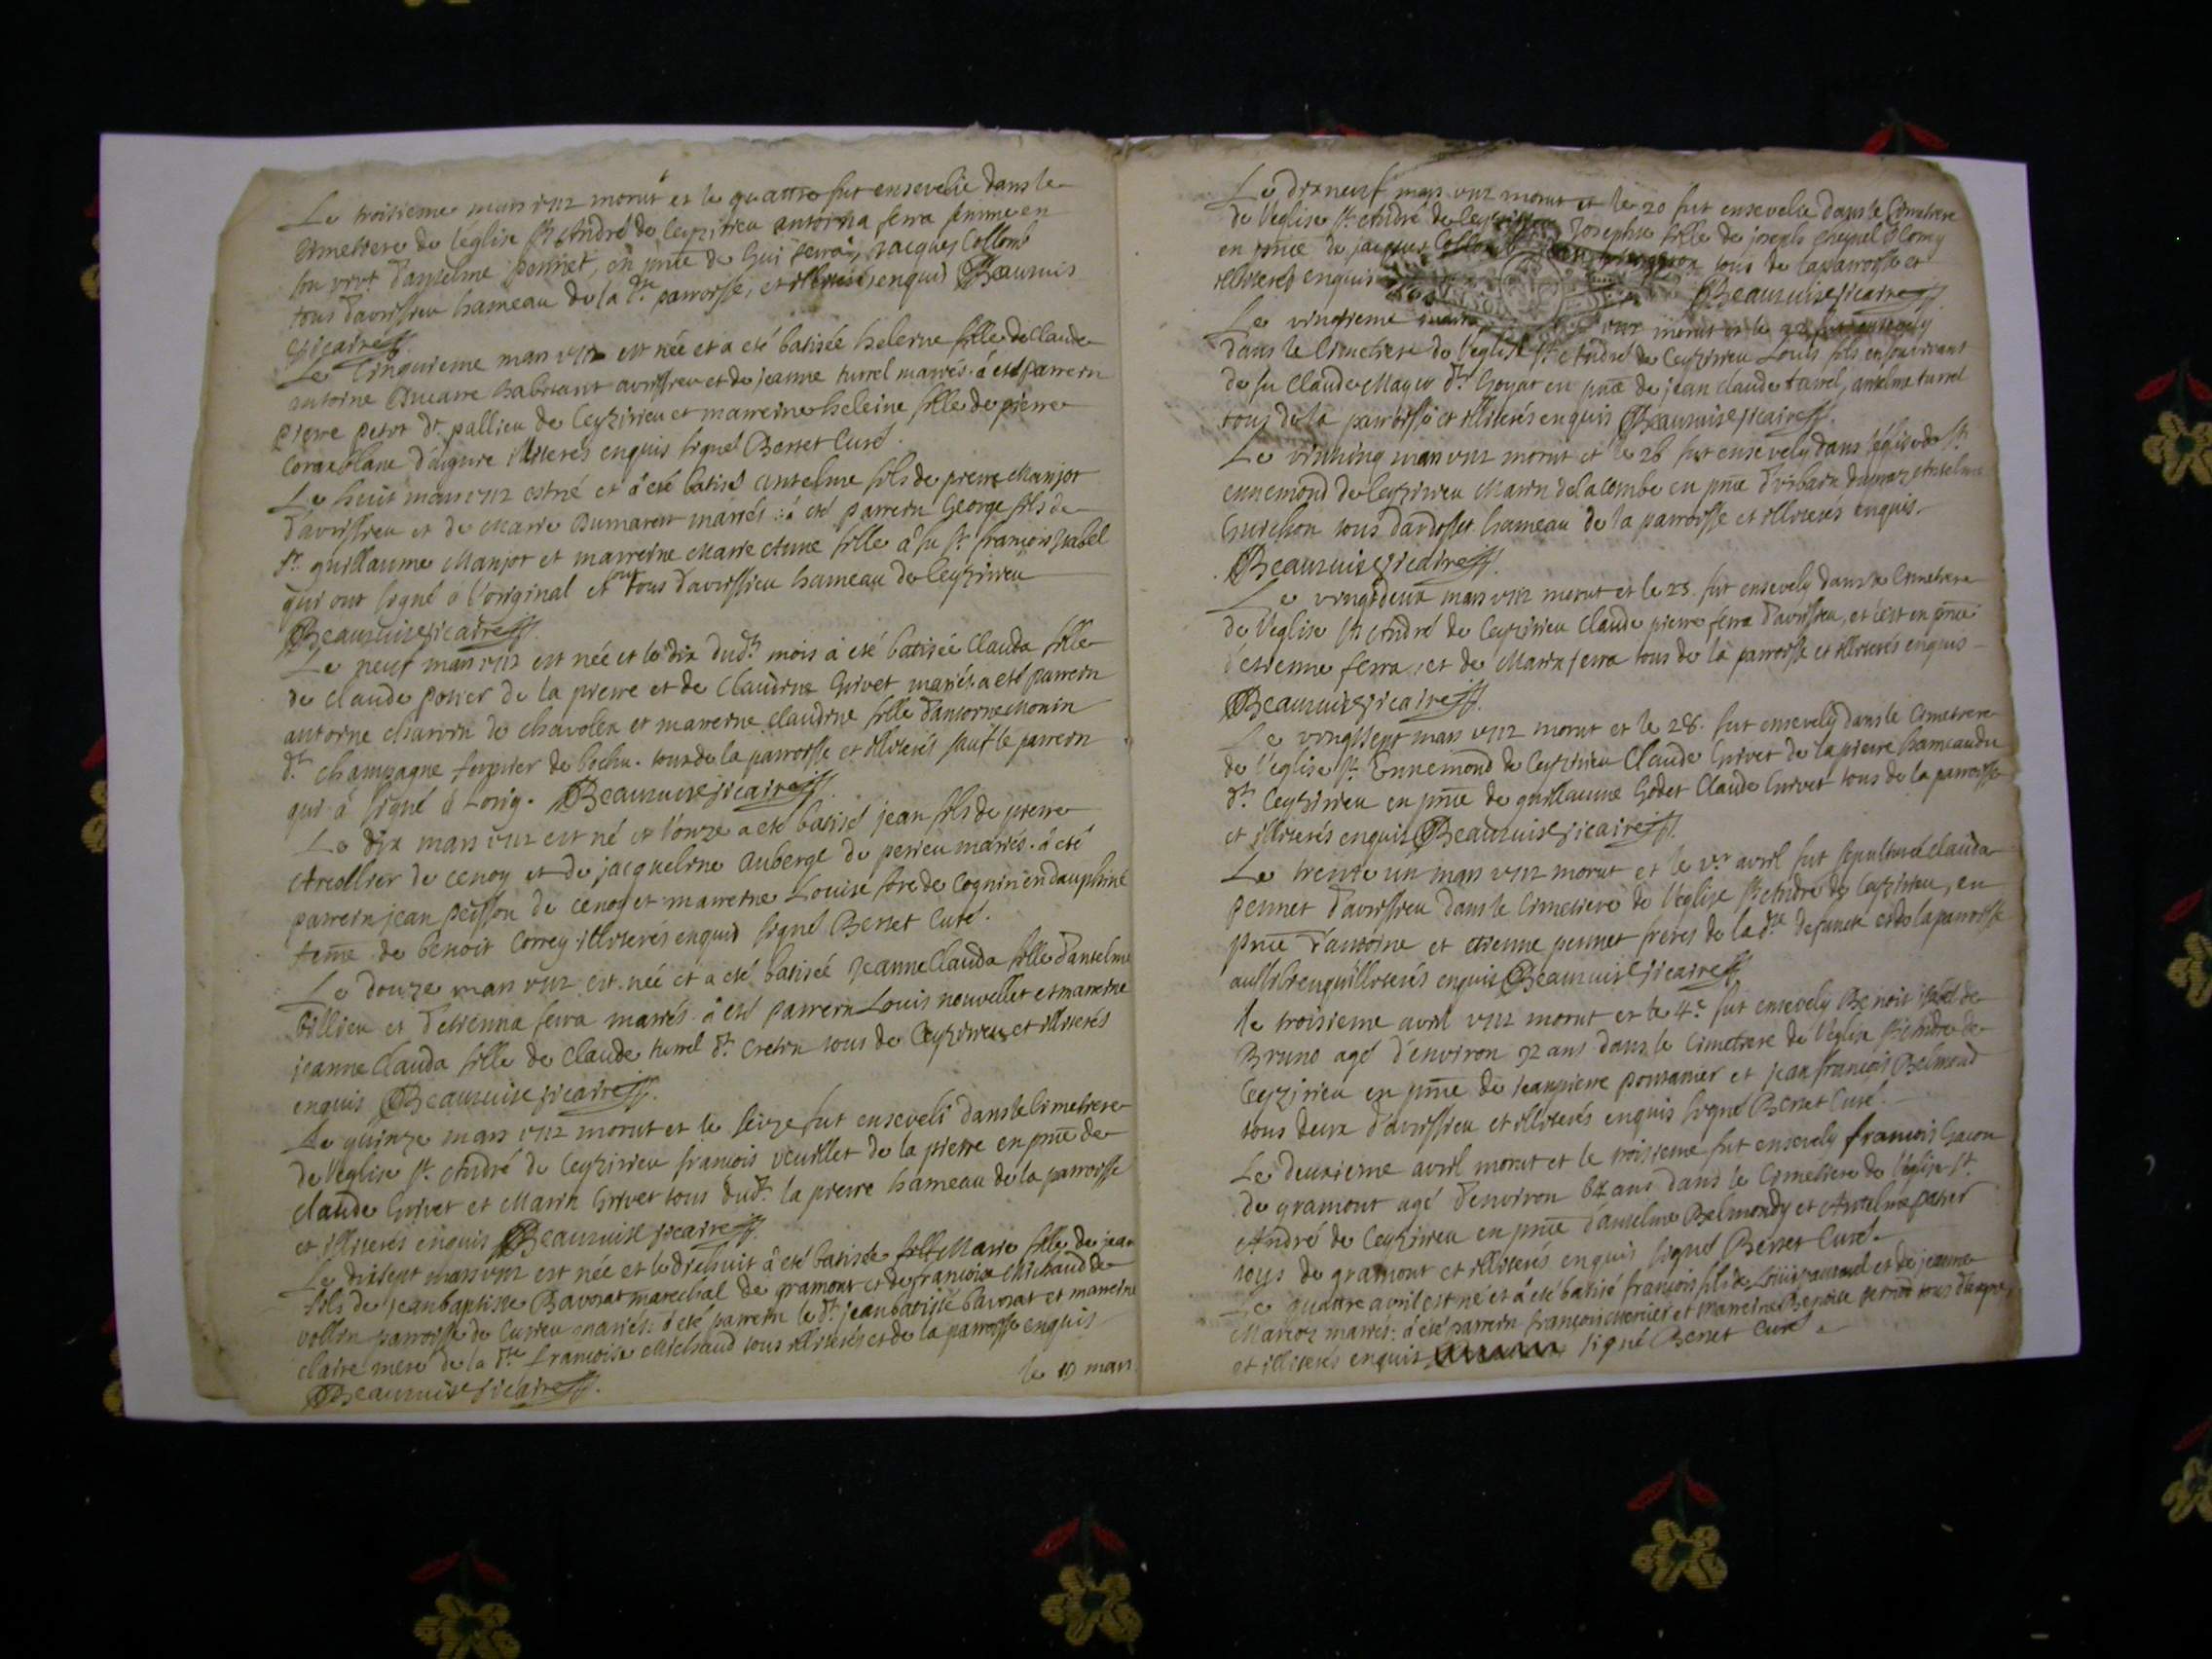 Le troisieme mars 1712 morut et le quattre fut ensevelie dans le
Cimettere de léglise St André de Ceyzirieu antoina ferra femme en
son vivt d'anselme pennet, en pnce de Gui ferra, Jacques Collomb
tous d'avrissieu hameau de la dte parroisse, et illiterés enquis Beauvuis
vicaire
Le Cinquieme mars 1712 est née et a eté batisée helerne fille de Claude
antoine Ducarre habitant avrissieu et de jeanne turrel mariés. á eté parrein
pierre petit dt. pallieu de Ceyzirieu et marreine heleine fille de pierre
Corneblanc d'aignre illiterés enquis signé Berset Curé.
Le huit mars 1712 est né et á eté batisé antelme fils de pierre Manjot
d'avrissieu et de Marie Dumarest mariés: á eté parrein George fils de
Sr. guillaume Manjot et marreine Marie Anne fille á fu Sr. francois Ysabel
qui ont signé á l'original et sont tous d'avrissieu hameau de Ceyzirieu
Beauvuis vicaire
Le neuf mars 1712 est née et le dix dudt. mois á eté batisée Clauda fille
de Claude potier de la pierre et de Claudine Grivet mariés. a eté parrein
antoine charvin de chavoley et marreine claudine fille d'antoine Monin
dt. champagne fermier de bochu. tous de la parroisse et illiterés sauf le parrein
qui á signé á L'orig. Beauvuis vicaire
Le dix mars 1712 est né et l'onze a eté batisé jean fils de pierre
de cenoy et de jacqueline auberge de perieu mariés. á eté
parrein jean peisson de cenoy et marreine Louise de Cognin en dauphiné
femme de benoit Correy illiterés enquis signé Berset Curé.
Le douze mars 1712 est née et a eté batisée jeanne Clauda fille d'antelme
billieu et d'etienna ferra mariés. á eté parrein Louis nouvellet et marreine
jeanne Clauda fille de Claude turrel dt. Cretin tous de Ceyzirieu et illiterés
enquis Beauvuis vicaire
Le quinze mars 1712 morut et le seize fut enseveli dans le cimetiere
de l'eglise St. André de Ceyzirieu francois veuillet de la pierre en pnce de
claude Grivet et Marin Grivet tous dudt. la pierre hameau de la parroisse
et illiterés enquis Beauvuis vicaire
Le dixsept mars 1712 est née et le dixhuit á eté batisée Marie fille de jean
fils de jeanbaptiste Bavorat marechal de gramont et de francoise Michaud de
vollin parroisse de Cusieu mariés: á eté parrein le dt. jeanbatiste bavorat et marreine
claire mere de la dte francoise Michaud tous illiterés et de la parroisse enquis
Beauvuis vicaire
le 19 mars
Le dixneuf mars 1712 morut et le 20 fut ensevelie dans le Cimetiere
de l'eglise St. André de Ceyzirieu Josephte fille de joseph
en pnce de jacques Collomb tous de la parroisse et
illiterés enquis Beauvuis vicaire
Le vingtieme mars 1712 morut et le 22 fut ensevely
dans le Cimetiere de l'eglise St. André de Ceyzirieu Louis fils en son vivant
de fu Claude dt. Goyat en pnce de jean claude turrel, antelme turrel
tous de la parroisse et illiterés enquis Beauvuis vicaire
Le vintcinq mars 1712 morut et le 26 fut ensevely dans l'église de St.
ennemond de Ceyzirieu Marin de la combe en pnce d'Urbain dupraz Antelme
Guichon tous d'ardosset hameau de la parroisse et illiterés enquis
Beauvuis vicaire
Le vingtdeux mars 1712 morut et le 23. fut ensevely dans le Cimetiere
de l'eglise St. André de Ceyzirieu Claude pierre ferra d'avrissieu, et c'est en pnce
d'etienne ferra, et de Marin ferra tous de la parroisse et illiterés enquis
Beauvuis vicaire
Le vingtsept mars 1712 morut et le 28. fut ensevely dans le Cimetiere
de l'eglise St. Ennemond de Ceyzirieu Claude Grivet de la pierre hameau du
dt. Ceyzirieu en pnce de guillaume Godet Claude Grivet tous de la parroisse
et illiterés enquis Beauvuis vicaire
Le trente un mars 1712 morut et le 1er avril fut sepulturé Clauda
pennet d'avrissieu dans le Cimetiere de l'eglise St. André de Ceyzirieu, en
pnce d'antoine et etienne pennet freres de la dte defuncte et de la parroisse
aussi bien qu'illiterés enquis Beauvuis vicaire
le troisieme avril 1712 morut et le 4e. fut ensevely Benoit isabel de
Bruno agé d'environ 72 ans dans le Cimetiere de l'eglise St. André de
Ceyzirieu en pnce de jeanpierre et jean françois Belmond
tous deux d'avrissieu et illiterés enquis signé Berset Curé.
Le deuxieme avril morut et le troisieme fut ensevely francois Gacon
de gramont agé d'environ 64 ans dans le Cimetiere de l'eglise St.
André de Ceyzirieu en pnce d'anselme Belmondy et Antelme
tous de gramont et illiterés enquis signé Berset Curé.
Le quattre avril est né et á eté batisé françois fils de Louis et de jeanne
mariés: á eté parrein françois et marreine Benoite tous d'aignre
et illiterés enquis signé Berset Curé